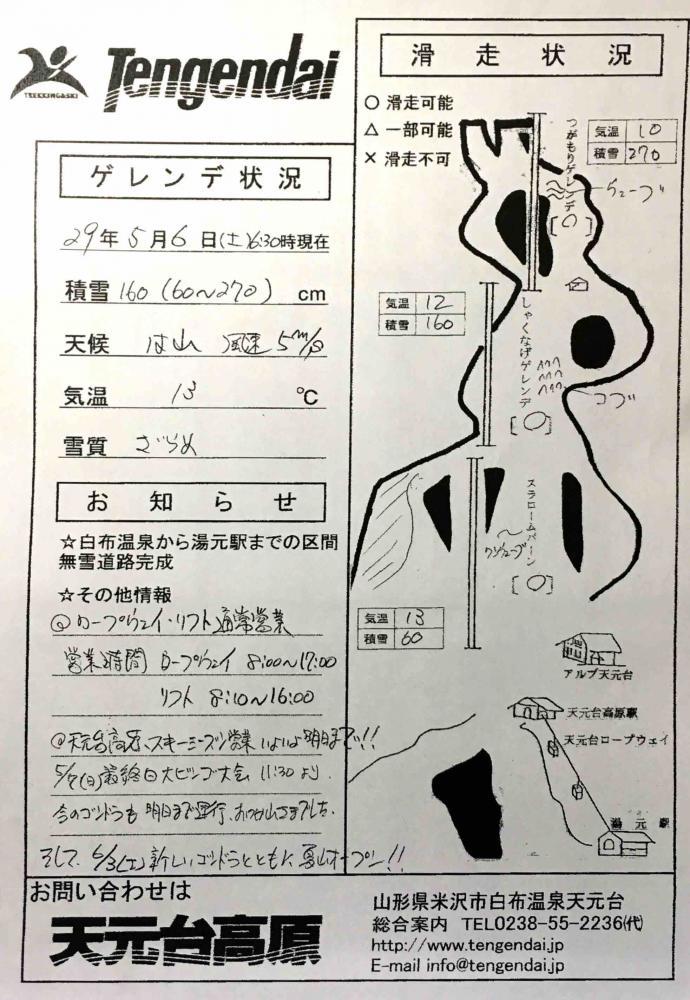 TREKKING&SKI
Tengendai
ゲレンデ状況
29年5月6日(土)6:30時現在
積雪 160 (60〜270) cm
天候 は山 風速 5m/s
気温 13 ℃
雪質 ざらめ
お知らせ
☆白布温泉から湯元駅までの区間
無雪道路完成
☆その他情報
◎ロープウェイ・リフト通常営業
営業時間 ロープウェイ 8:00〜17:00
リフト 8:10〜16:00
◎天元台高原、スキーシーズン営業いよいよ明日まで!!
5/7(日)最終日大ビンゴ大会 11:30より.
今のゴンドラも明日まで運行、おつかれさまでした.
そして、6/3(土)新しいゴンドラとともに夏山オープン!!
滑走状況
○ 滑走可能
△ 一部可能
× 滑走不可
つがもりゲレンデ
[○]
気温 10
積雪 270
チューブ
気温 12
積雪 160
しゃくなげゲレンデ
[○]
コブ
スラロームバーン
[○]
気温 13
積雪 60
アルブ天元台
天元台高原駅
天元台ロープウェイ
湯元駅
お問い合わせは
天元台高原
山形県米沢市白布温泉天元台
総合案内 TEL0238-55-2236(代)
http://www.tengendai.jp
E-mail info@tengendai.jp